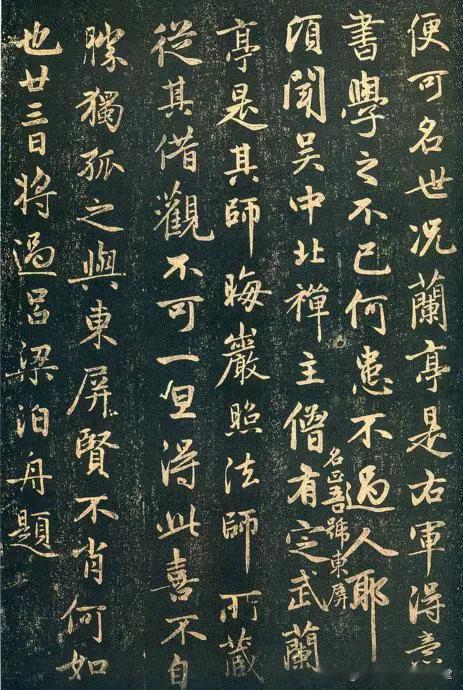 便可名世况蘭亭是右軍得意
書學之不已何患不過人耶
頃聞吴中北禪主僧有定武蘭
名吾號東屏
亭是其師晦巖照法師所蔵
從其借觀不可一旦得此喜不自
勝獨孤之與東屏賢不肖何如
也廿三日將過吕梁泊舟題